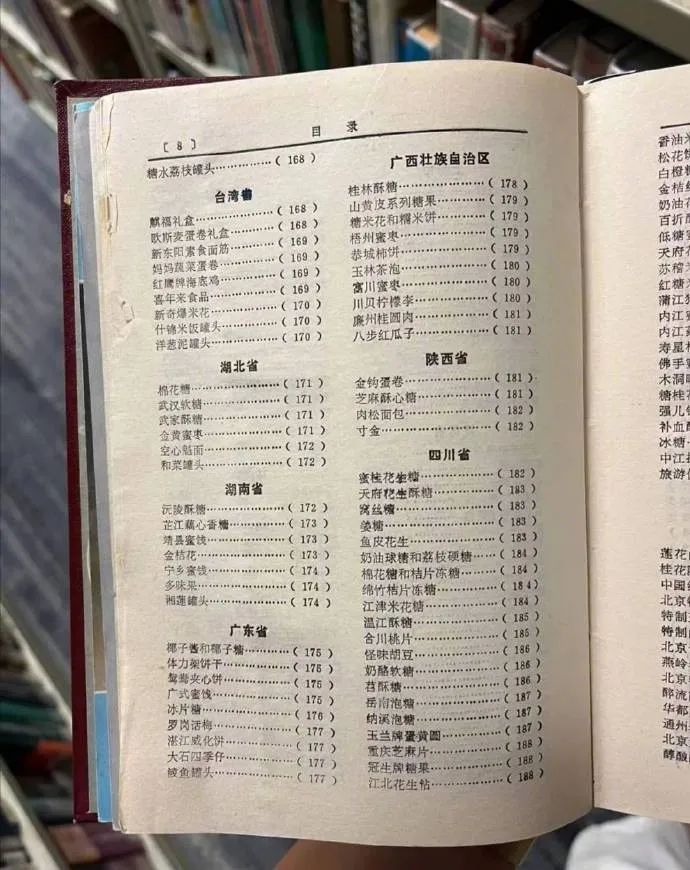 [8] 目录
糖水荔枝罐头……………(168)
台湾省
麒福礼盒……………(168)
欧斯麦蛋卷礼盒……………(168)
新东阳素食面筋……………(169)
妈妈蔬菜蛋卷……………(169)
红鹰牌海底鸡……………(169)
喜年来食品……………(169)
新奇爆米花……………(170)
什锦米饭罐头……………(170)
洋葱泥罐头……………(170)
湖北省
棉花糖……………(171)
武汉软糖……………(171)
武家酥糖……………(171)
金黄蜜枣……………(171)
空心魁面……………(172)
和菜罐头……………(172)
湖南省
沅陵酥糖……………(172)
芷江藕心香糖……………(173)
靖县蜜饯……………(173)
金桔花……………(173)
宁乡蜜饯……………(174)
多味果……………(174)
湘莲罐头……………(174)
广东省
椰子酱和椰子糖……………(175)
体力架饼干……………(175)
鸳鸯夹心饼……………(175)
广式蜜饯……………(175)
冰片糖……………(176)
罗岗话梅……………(177)
湛江威化饼……………(177)
大石四季仔……………(177)
鲮鱼罐头……………(177)
广西壮族自治区
桂林酥糖……………(178)
山黄皮系列糖果……………(179)
糖米花和糯米饼……………(179)
梧州蜜枣……………(179)
恭城柿饼……………(179)
玉林茶泡……………(180)
富川蜜枣……………(180)
川贝柠檬李……………(180)
廉州桂圆肉……………(181)
八步红瓜子……………(181)
陕西省
金钩蛋卷……………(181)
芝麻酥心糖……………(181)
肉松面包……………(182)
寸金……………(182)
四川省
蜜桂花生糖……………(182)
天府花生酥糖……………(183)
窝丝糖……………(183)
姜糖……………(183)
鱼皮花生……………(183)
奶油球糖和荔枝硬糖……………(184)
棉花糖和桔片冻糖……………(184)
绵竹桔片冻糖……………(184)
江津米花糖……………(184)
温江酥糖……………(185)
合川桃片……………(185)
怪味胡豆……………(185)
奶酪软糖……………(186)
苕酥糖……………(186)
岳南泡糖……………(187)
纳溪泡糖……………(187)
玉兰牌蛋黄圆……………(187)
重庆芝麻片……………(188)
冠生牌糖果……………(188)
江北花生粘……………(188)
香油米
松花饼
白橙糖
金桔
奶油花
百折
低糖蜜
天府花
苏稽
红糖
蒲江
内江蜜
内江
寿星
佛手蜜
木洞
糖桂花
强儿
补血
冰糖
中江
旅游
莲花
桂花
北京
特制
特制
北京
燕岭
北京
醉流
华都
通州
北京
醇酸